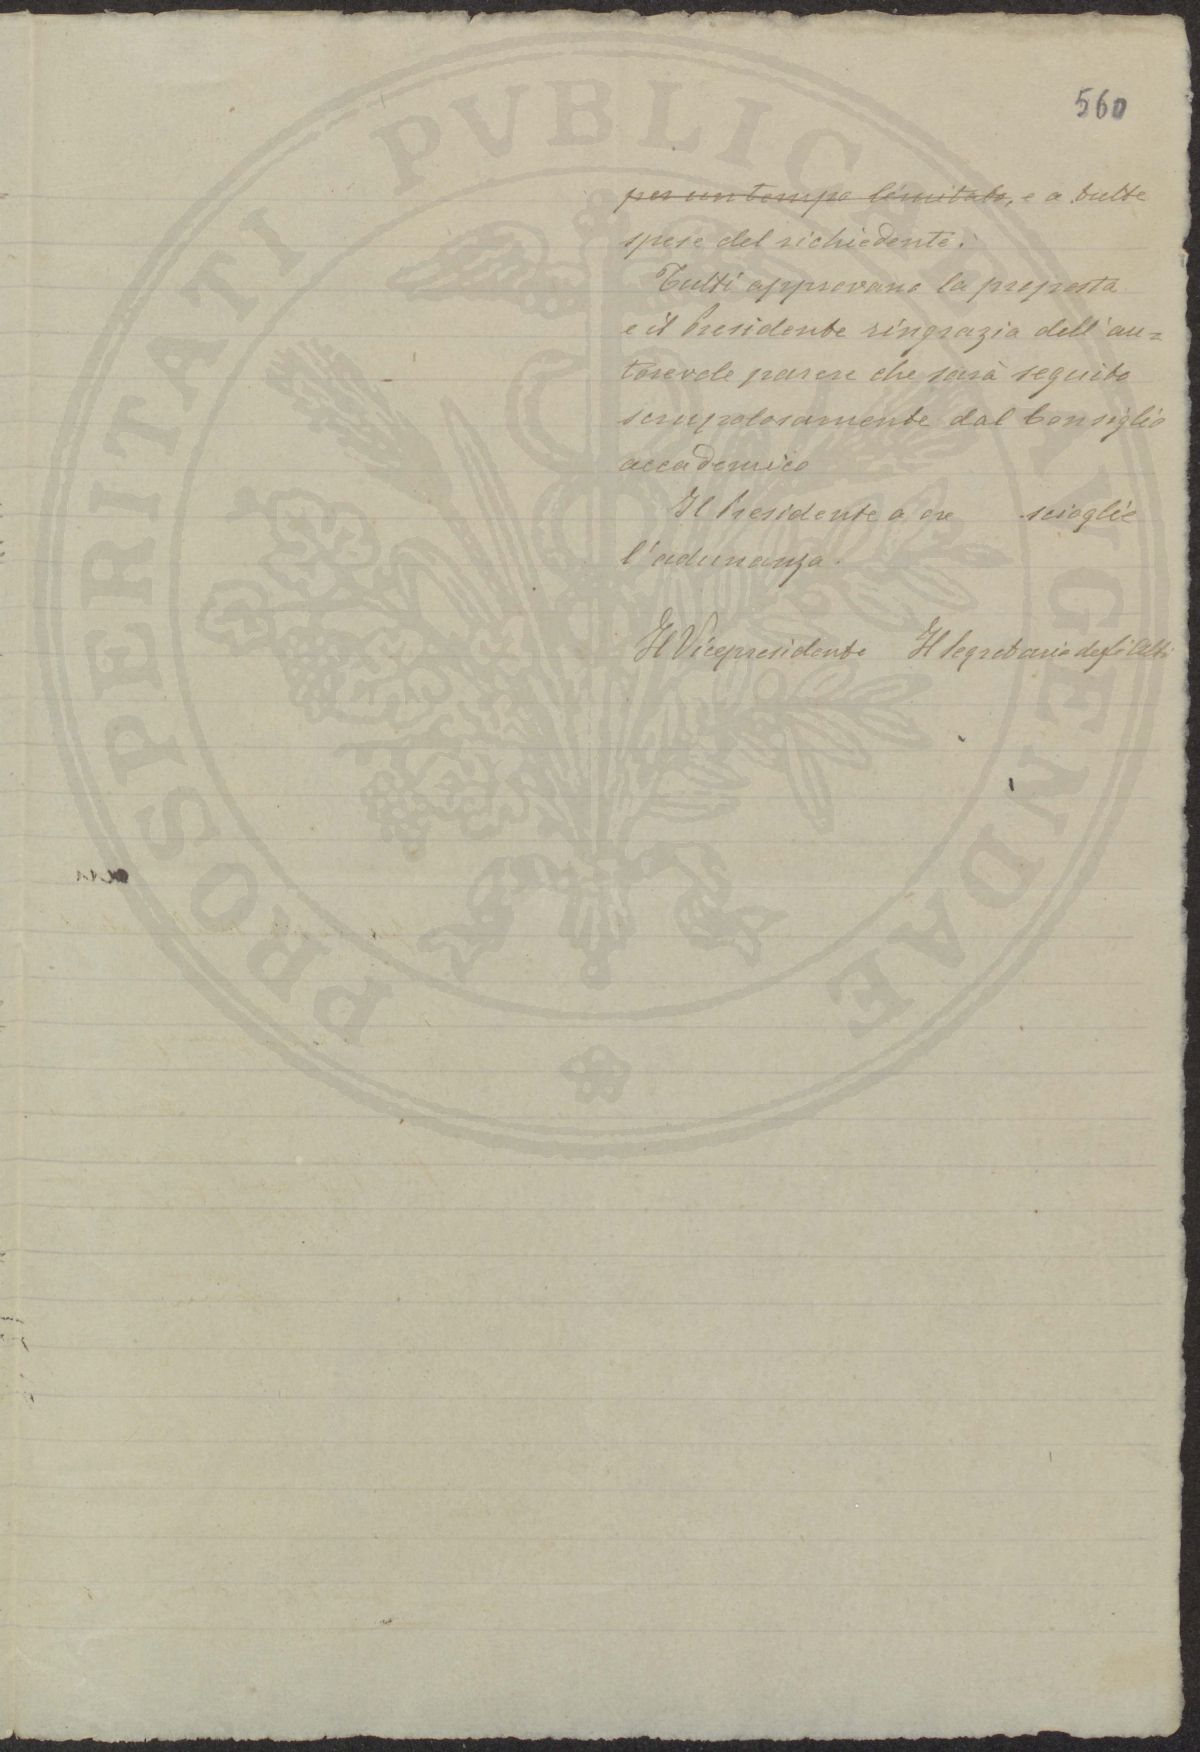 560
~~per un tempo limitato~~, e a tutte
spese del richiedente.
Tutti approvano la proposta
e il Presidente ringrazia dell'au=
torevole parere che sarà seguito
scrupolosamente dal Consiglio
accademico
Il Presidente a ore scioglie
l'adunanza.
Il Vicepresidente Il Segretario degli Atti
PROSPERITATI PVBLICAE AVGENDAE